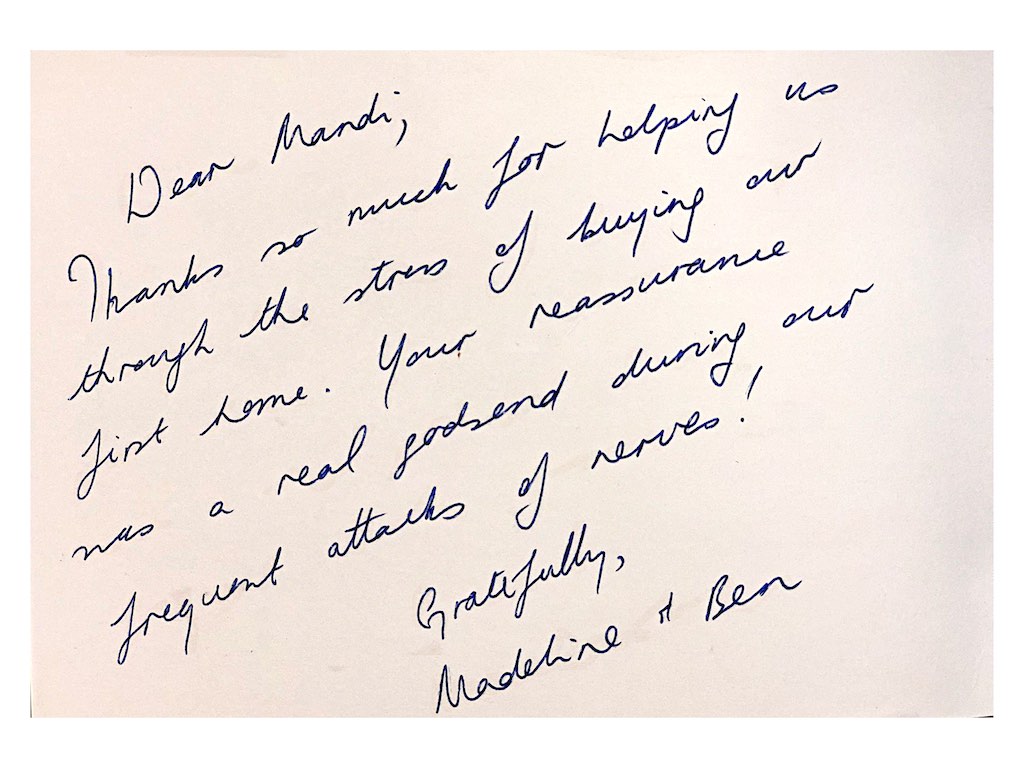 Dear Mandi,
Thanks so much for helping us
through the stress of buying our
first home. Your reassurance
was a real godsend during our
frequent attacks of nerves!
Gratefully,
Madeline & Ben